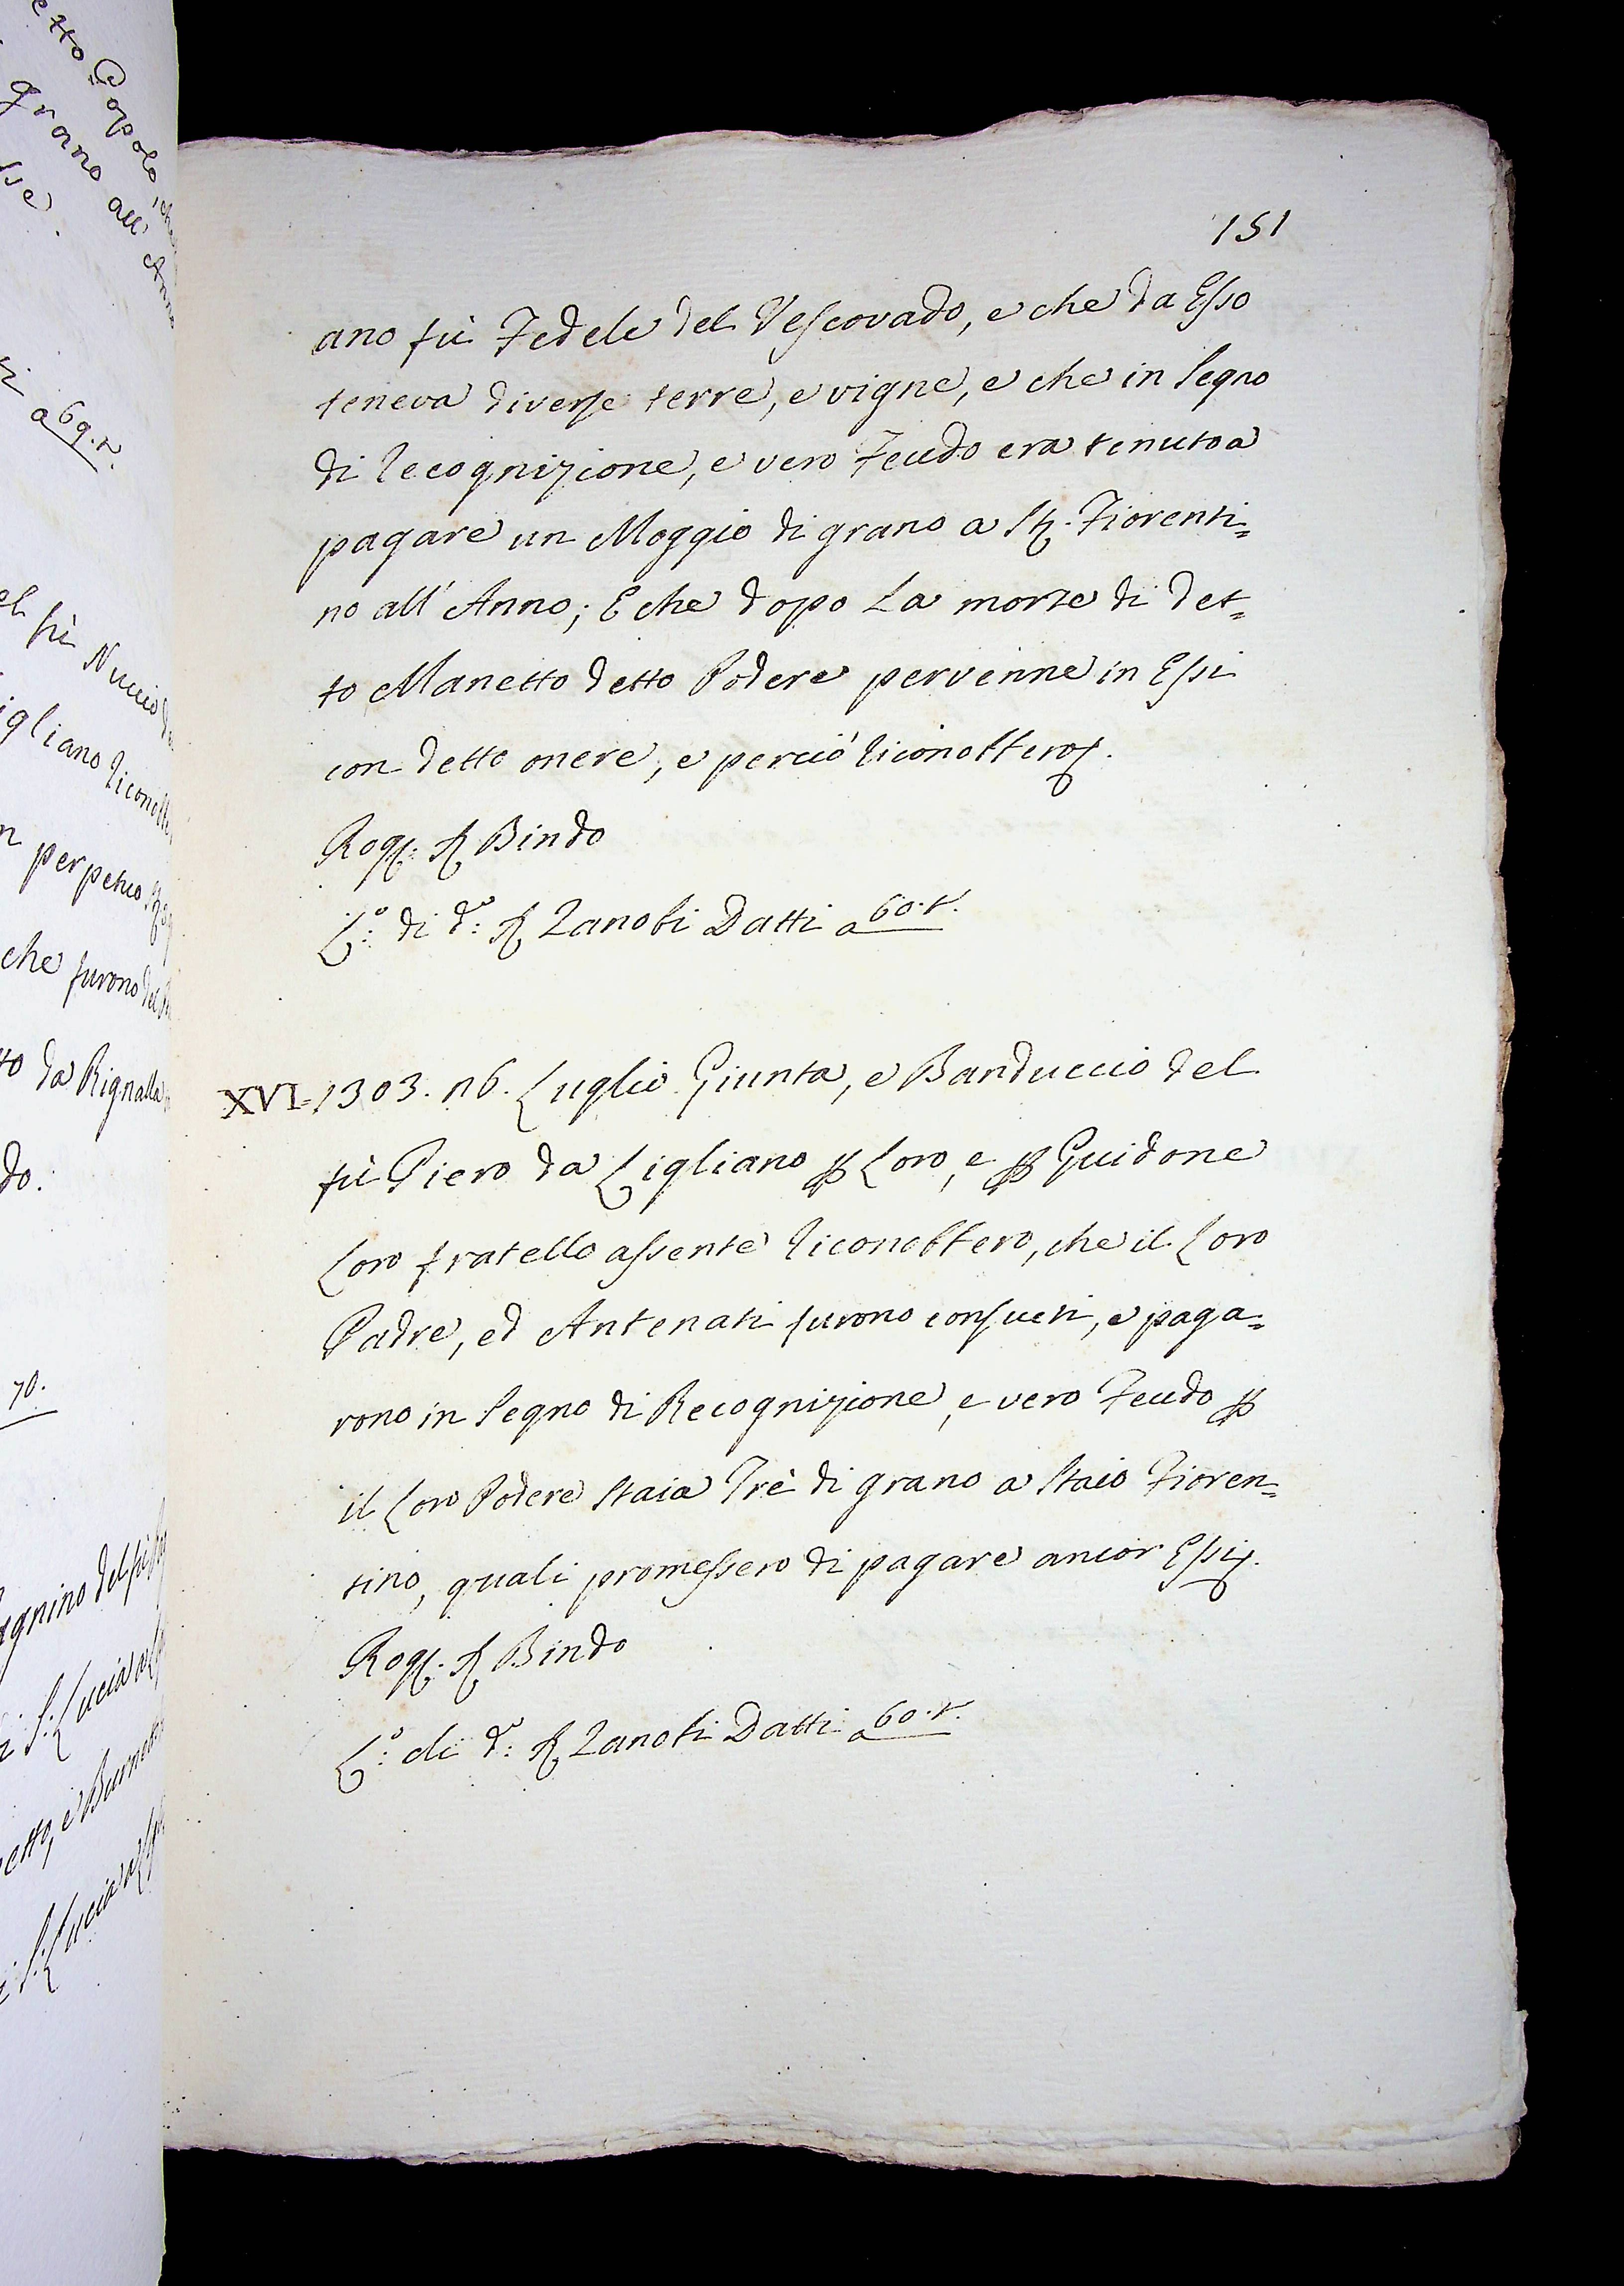 151
ano fù Fedele del Vescovado, e che da Esso
teneva diverse terre, e vigne, e che in segno
di recognizione, e vero Feudo era tenuto a
pagare un Moggio di grano a St. Fiorenti=
no all' Anno; E che dopo La morte di det=
to Manetto detto Podere pervenne in Essi
con detto onere, e perciò riconobbero
Rog. Sr Bindo
L.o di d.o Sr Zanobi Datti a 60.t.
XVI = 1303. 16. Luglio Giunta, e Banduccio del
fù Piero da Ligliano p Loro, e p Guidone
Loro fratello assente riconobbero, che il Loro
Padre, ed Antenati furono consueti, e paga=
rono in segno di Recognizione, e vero Feudo p
il Loro Podere Staia Trè di grano a Staio Fioren=
tino, quali promessero di pagare ancor Essi
Rog. Sr Bindo
L.o di d.o Sr Zanobi Datti a 60.t.
grano all'
a 69.t.
el fù Nuccio
igliano
perpetuo
che furono
da Rignalla
do.
70.
S. Lucia
S. Lucia